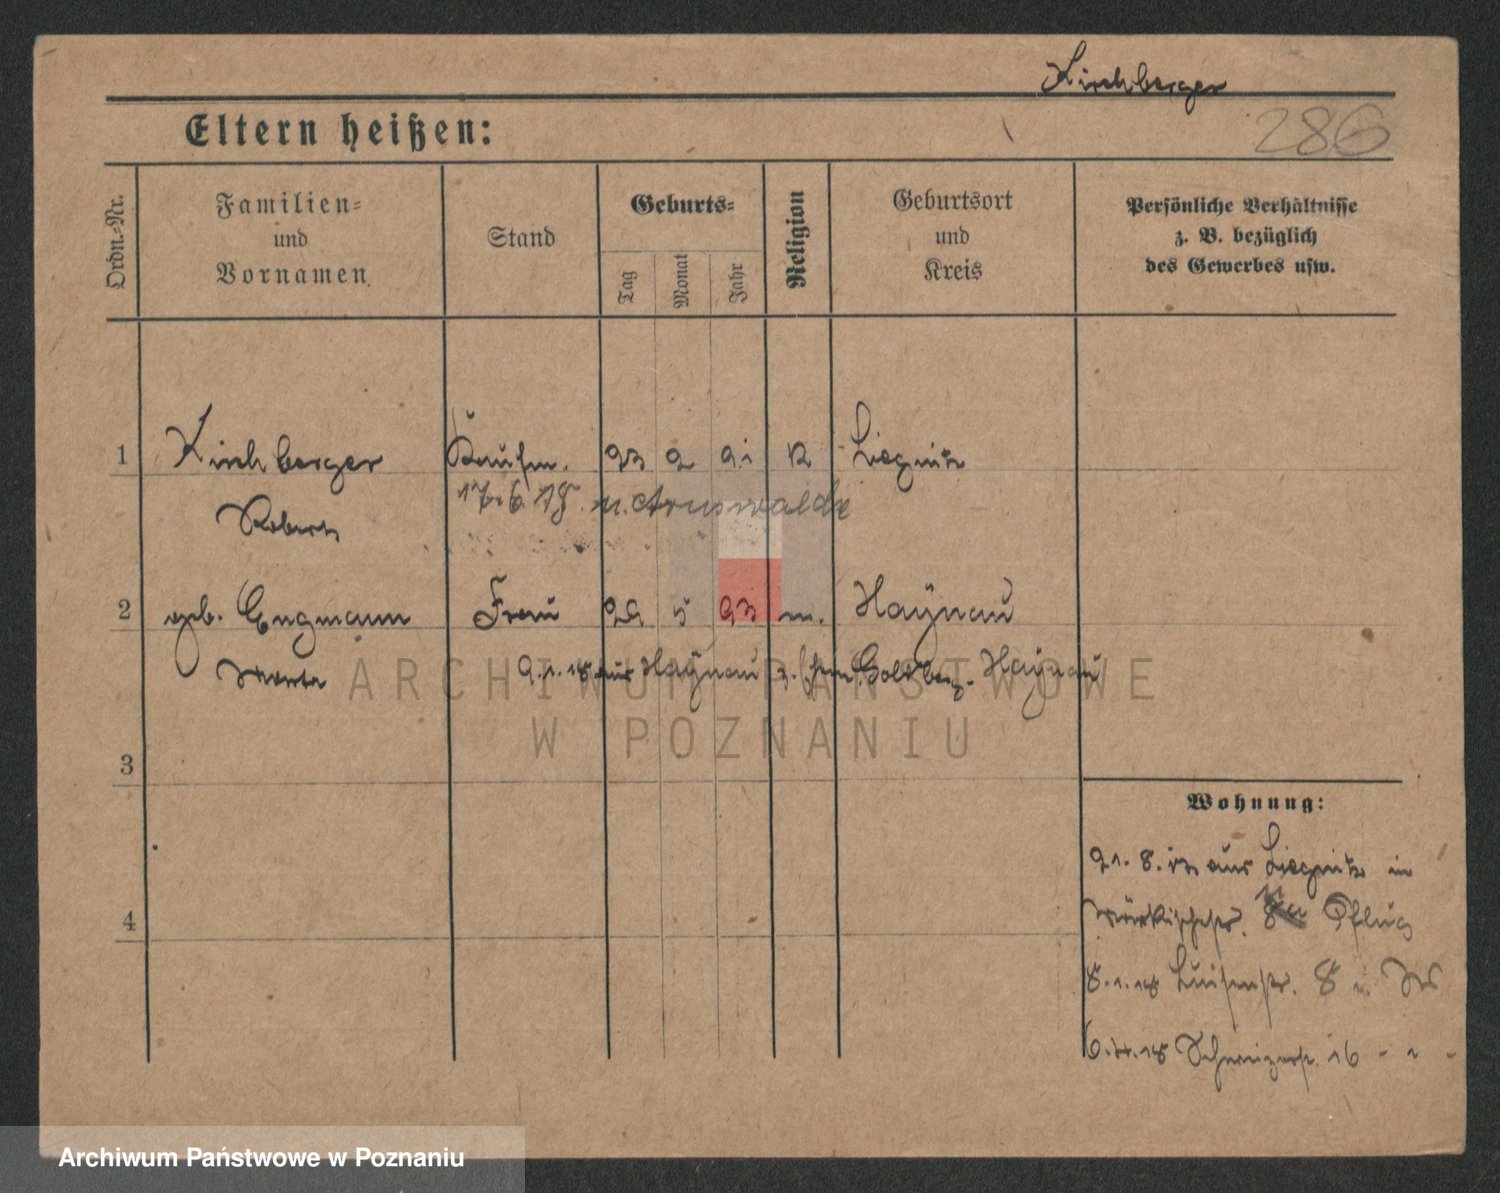 Kirchberger
Eltern heißen:
286
Ordn.-Nr.
Familien-
und
Vornamen
Stand
Geburts-
Tag
Monat
Jahr
Religion
Geburtsort
und
Kreis
Persönliche Verhältnisse
z. B. bezüglich
des Gewerbes usw.
1 Kirchberger Kaufm. 23 2 91 Liegnitz
17.6.18. n. Arnswalde
Robert
2 geb. Engmann Frau 29 5 93 Haynau
9.1.18 aus Haynau Goldberg-Haynau
ARCHIWUM PAŃSTWOWE
W POZNANIU
3
4
Wohnung:
21. 8. aus Liegnitz in
Märkischestr. Pflug
8.1.18 Luisenstr. 8
6.4.18 Schweizerstr. 16 - - -
Archiwum Państwowe w Poznaniu